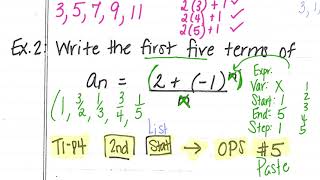 3, 5, 7, 9, 11
2(3)+1 ✓
2(4)+1 ✓
2(5)+1 ✓
Ex. 2: Write the first five terms of
an = (2 + (-1)
(1, 3/2, 1/3, 3/4, 1/5
Expr:
Var: X
Start: 1
End: 5
Step: 1
1
2
3
4
5
List
TI-84 2nd Stat → OPS #5
Paste